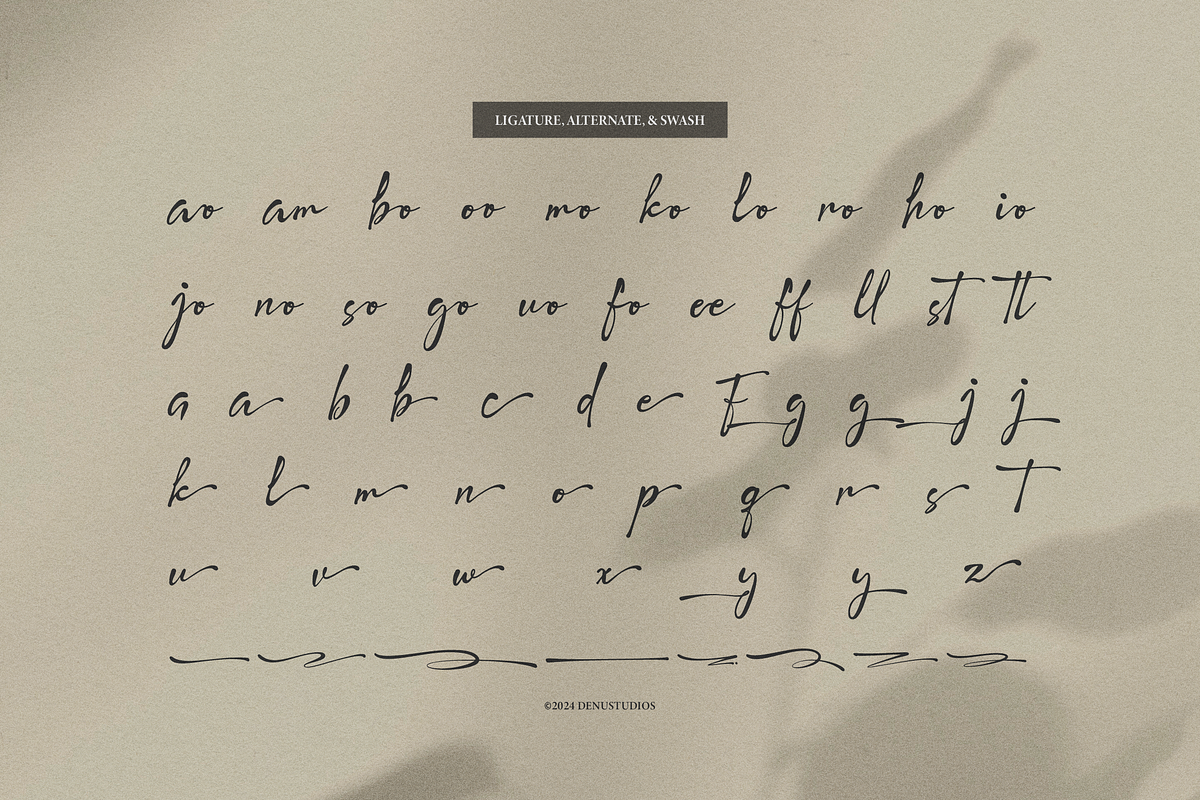 LIGATURE, ALTERNATE, & SWASH
ao am bo oo mo ko lo ro ho io
jo no so go uo fo ee ff ll st tt
a a b b c d e F g g j j
k l m n o p q r s T
u v w x y y z
©2024 DENUSTUDIOS